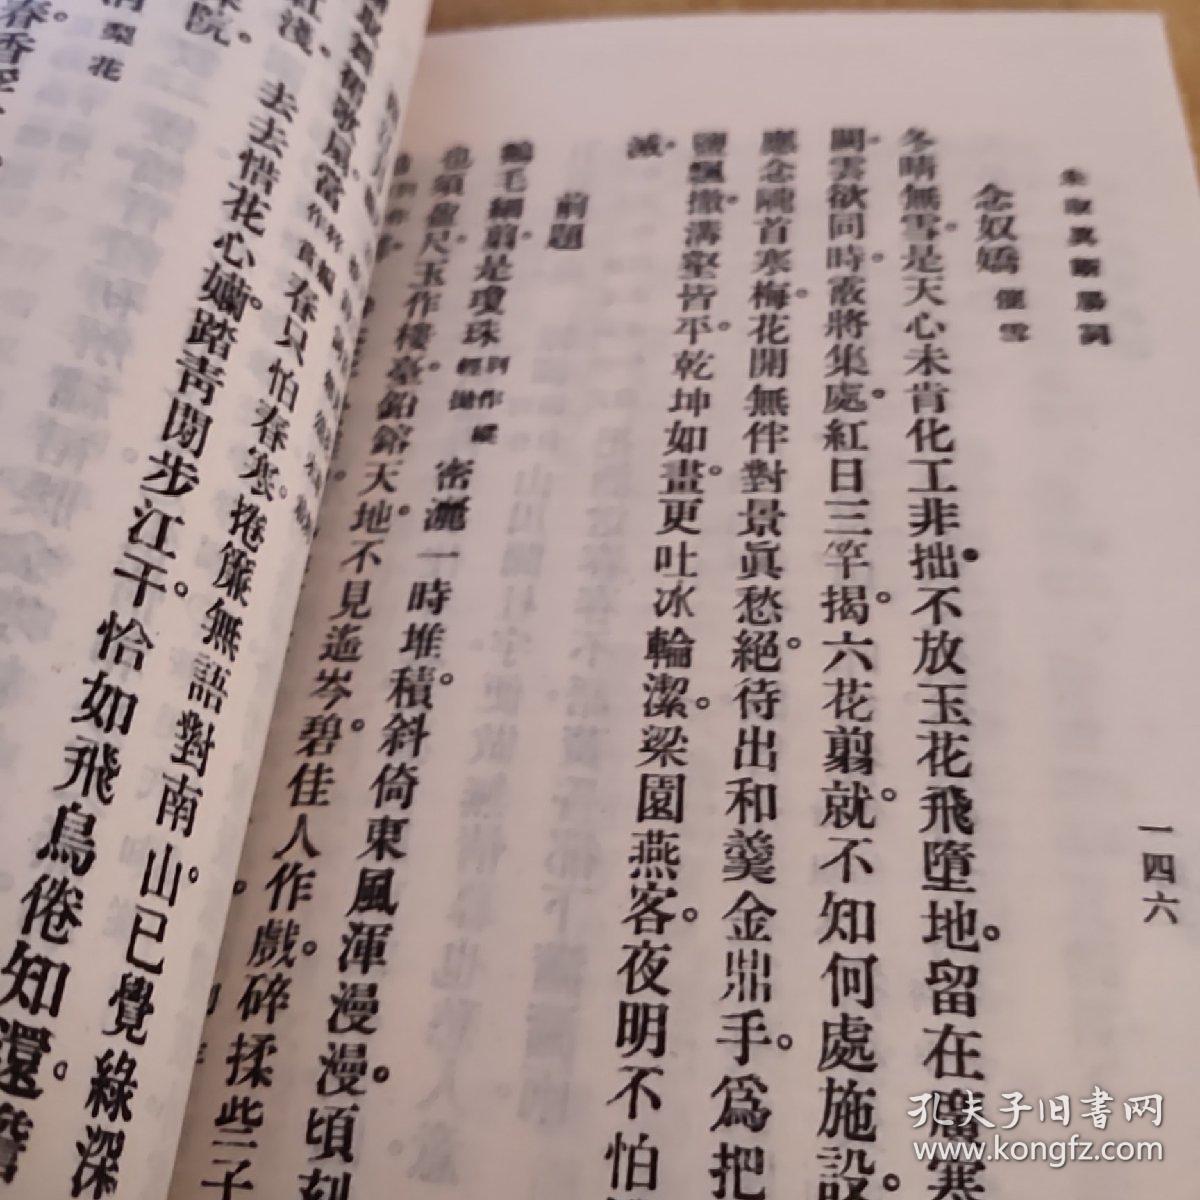 朱淑真斷腸詞
一四六
念奴嬌 催雪
冬晴無雪。是天心未肯化工非拙。不放玉花飛墮地。留在廣寒
闕。雲欲同時。霰將集處。紅日三竿揭。六花剪就。不知何處施設。
應念隴首寒梅。花開無伴對景眞愁絕。待出和羹金鼎手。爲把
鹽飄撒。溝壑皆平。乾坤如畫。更吐冰輪潔。梁園燕客。夜明不怕
滅。
前題
鵝毛細剪。是瓊珠 別作縱輕拋 密灑一時堆積。斜倚東風渾漫漫。頃刻
也須盈尺。玉作樓臺。鉛鎔天地。不見遙岑碧。佳人作戲。碎揉些子
春只怕春寒。捲簾無語對南山。已覺綠深
去去惜花心嬾。踏青閒步江干。恰如飛鳥倦知還。
梨花
孔夫子旧書网
www.kongfz.com